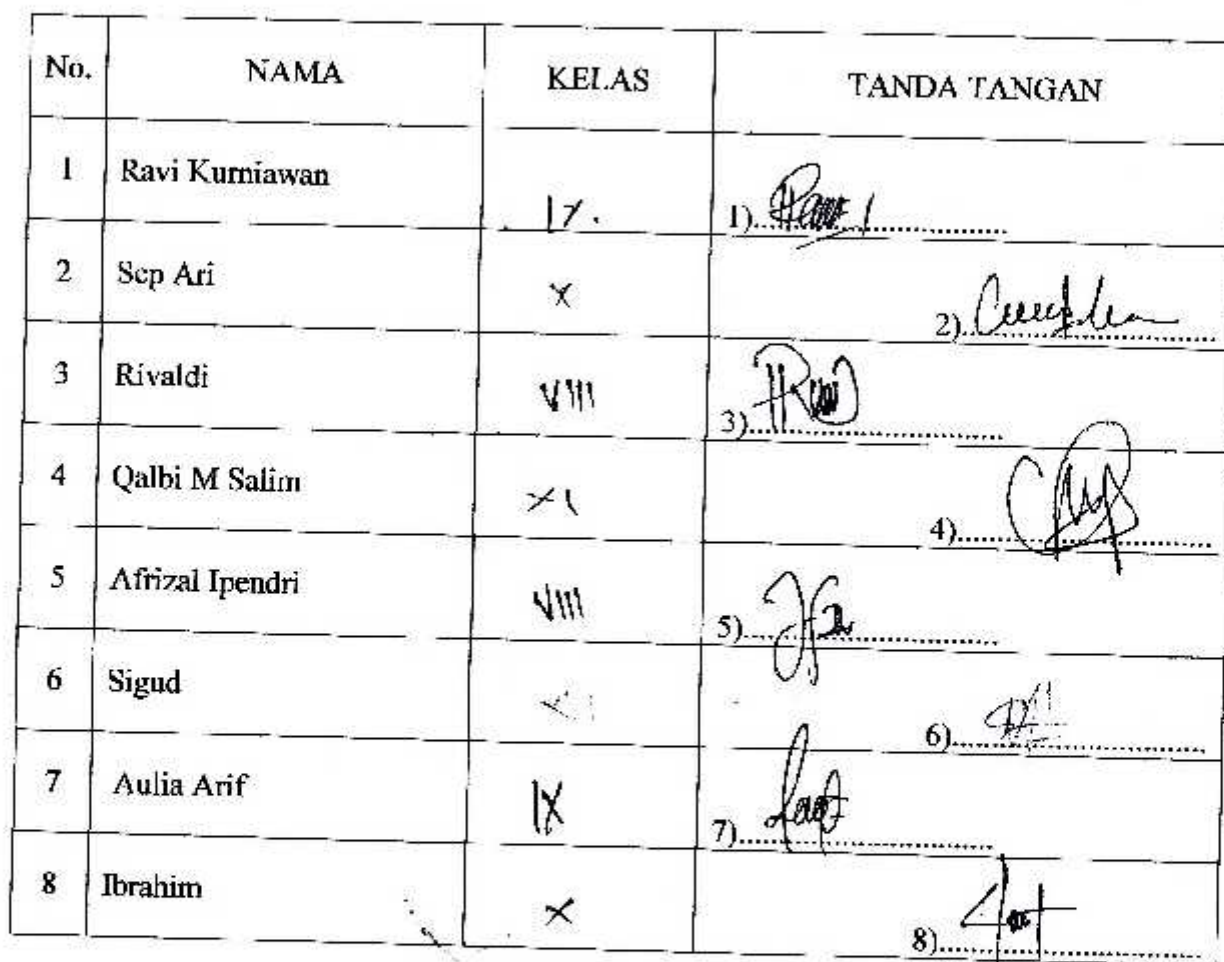 No. NAMA KELAS TANDA TANGAN
1 Ravi Kurniawan IX. 1)
2 Sep Ari X 2)
3 Rivaldi VIII 3)
4 Qalbi M Salim XI 4)
5 Afrizal Ipendri VIII 5)
6 Sigud 6)
7 Aulia Arif IX 7)
8 Ibrahim X 8)